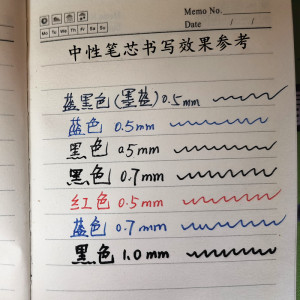 Memo No.
Mo Tu We Th Fr Sa Su
Date / /
中性笔芯书写效果参考
蓝黑色(墨蓝)0.5mm
蓝色 0.5mm
黑色 0.5mm
黑色 0.7mm
红色 0.5mm
蓝色 0.7mm
黑色 1.0mm